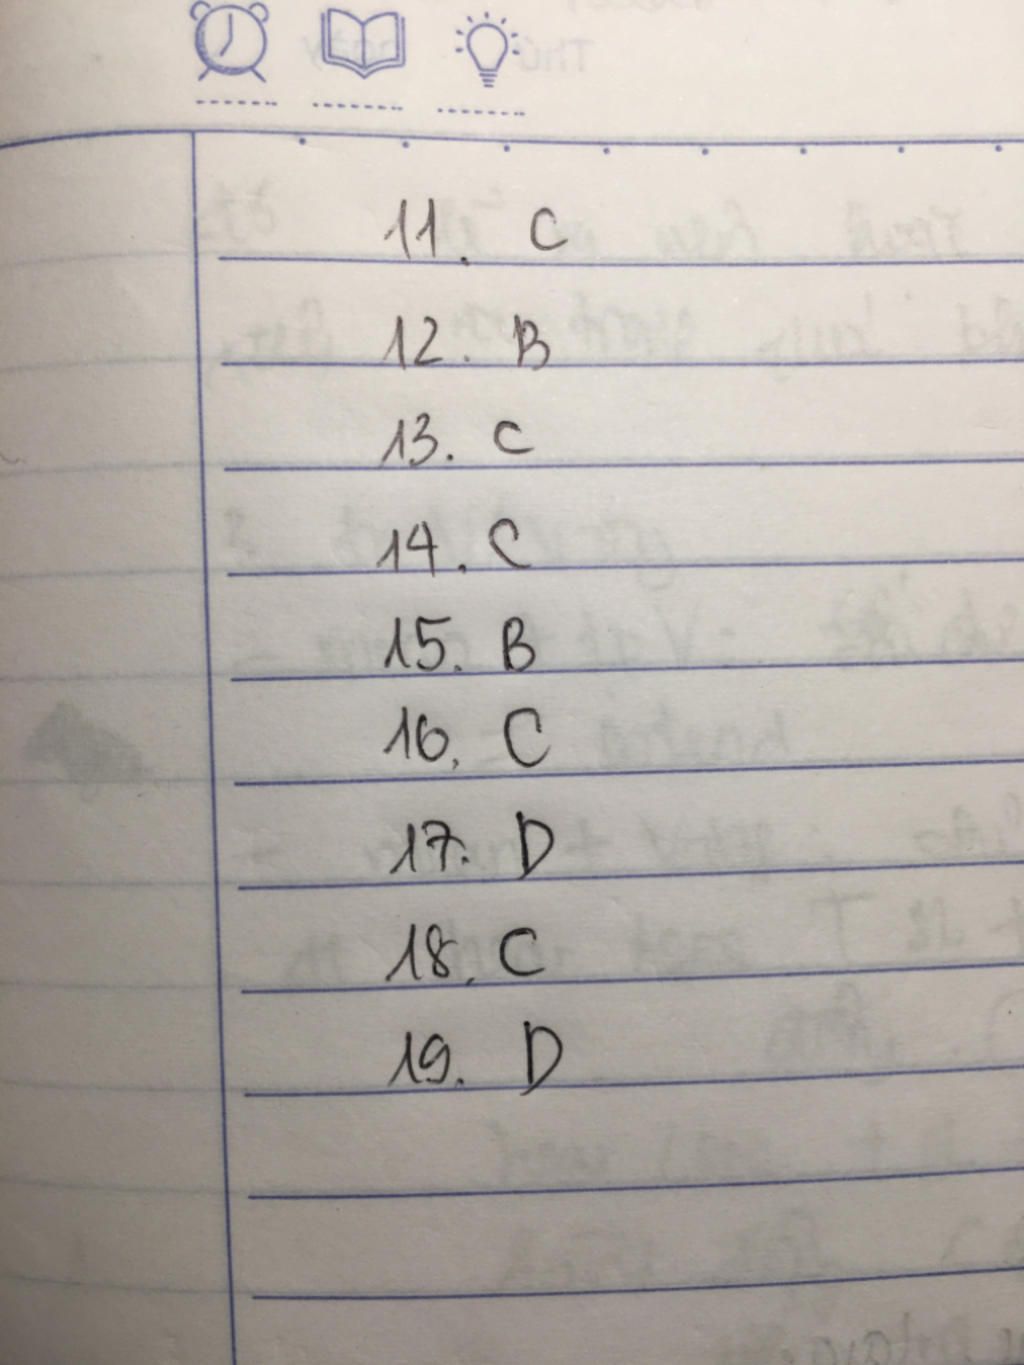 11. C
12. B
13. C
14. C
15. B
16. C
17. D
18. C
19. D